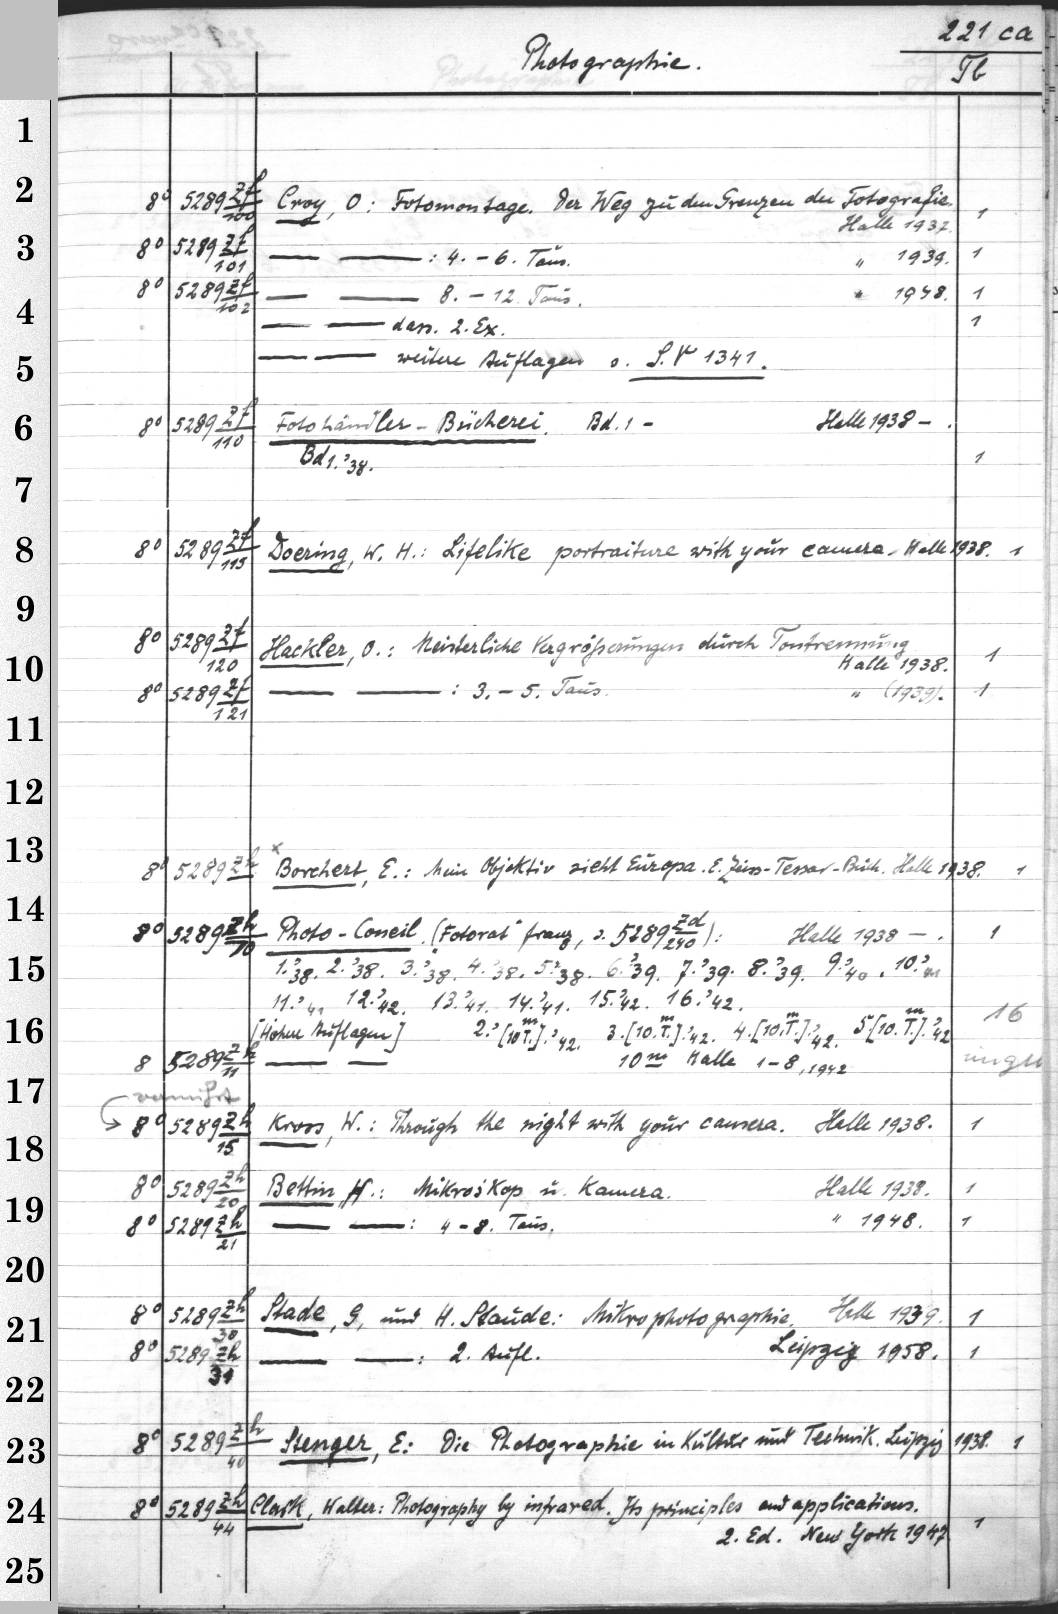 221 ca
Photographie.
Tb
1
2
8° 5289 Zf/100 Croy, O: Fotomontage. Der Weg zu den Grenzen der Fotografie.
Halle 1937. 1
3
8° 5289 Zf/101 — — : 4. – 6. Taus. " 1939. 1
8° 5289 Zf/102 — — 8. – 12. Taus. " 1948. 1
4
— — dass. 2. Ex. 1
5
— — weitere Auflagen s. S. V 1341.
6
8° 5289 Zf/110 Fotohändler-Bücherei. Bd. 1 - Halle 1938 – .
Bd 1.'38. 1
7
8
8° 5289 Zf/115 Doering, W. H.: Lifelike portraiture with your camera. Halle 1938. 1
9
8° 5289 Zf/120 Hackler, O.: Meisterliche Vergrößerungen durch Tontrennung
10
Halle 1938. 1
8° 5289 Zf/121 — — : 3. – 5. Taus. " (1939). 1
11
12
13
8° 5289 Zh x Borchert, E.: Mein Objektiv sieht Europa. E. Zeiss-Tessar-Buch. Halle 1938. 1
14
8° 5289 Zh/10 Photo-Conseil. (Fotorat franz, s. 5289 Zd/240): Halle 1938 – . 1
15
1.'38. 2.'38. 3.'38. 4.'38. 5.'38. 6.'39. 7.'39. 8.'39. 9.'40. 10.'
11.' 12.'42. 13.'41. 14.'41. 15.'42. 16.'42. 16
16
[Höhere Auflagen] 2.'[10 T.]'42. 3.[10.T.]'42. 4.[10.T.]'42. 5[10.T.]'42
8 5289 Zh/11 — — 10 m Halle 1-8, 1942
17
vermißt
8° 5289 Zh/15 Kross, W.: Through the night with your camera. Halle 1938. 1
18
8° 5289 Zh/20 Bettin, H.: Mikroskop u. Kamera. Halle 1938. 1
19
8° 5289 Zh/21 — — : 4-8. Taus. " 1948. 1
20
21
8° 5289 Zh/30 Stade, G, und H. Staude: Mikrophotographie. Halle 1939. 1
8° 5289 Zh/31 — — : 2. Aufl. Leipzig 1958. 1
22
23
8° 5289 Zh/40 Stenger, E: Die Photographie in Kultur und Technik. Leipzig 1938. 1
24
8° 5289 Zh/44 Clark, Walter: Photography by infrared. Its principles and applications.
2. Ed. New York 1947 1
25